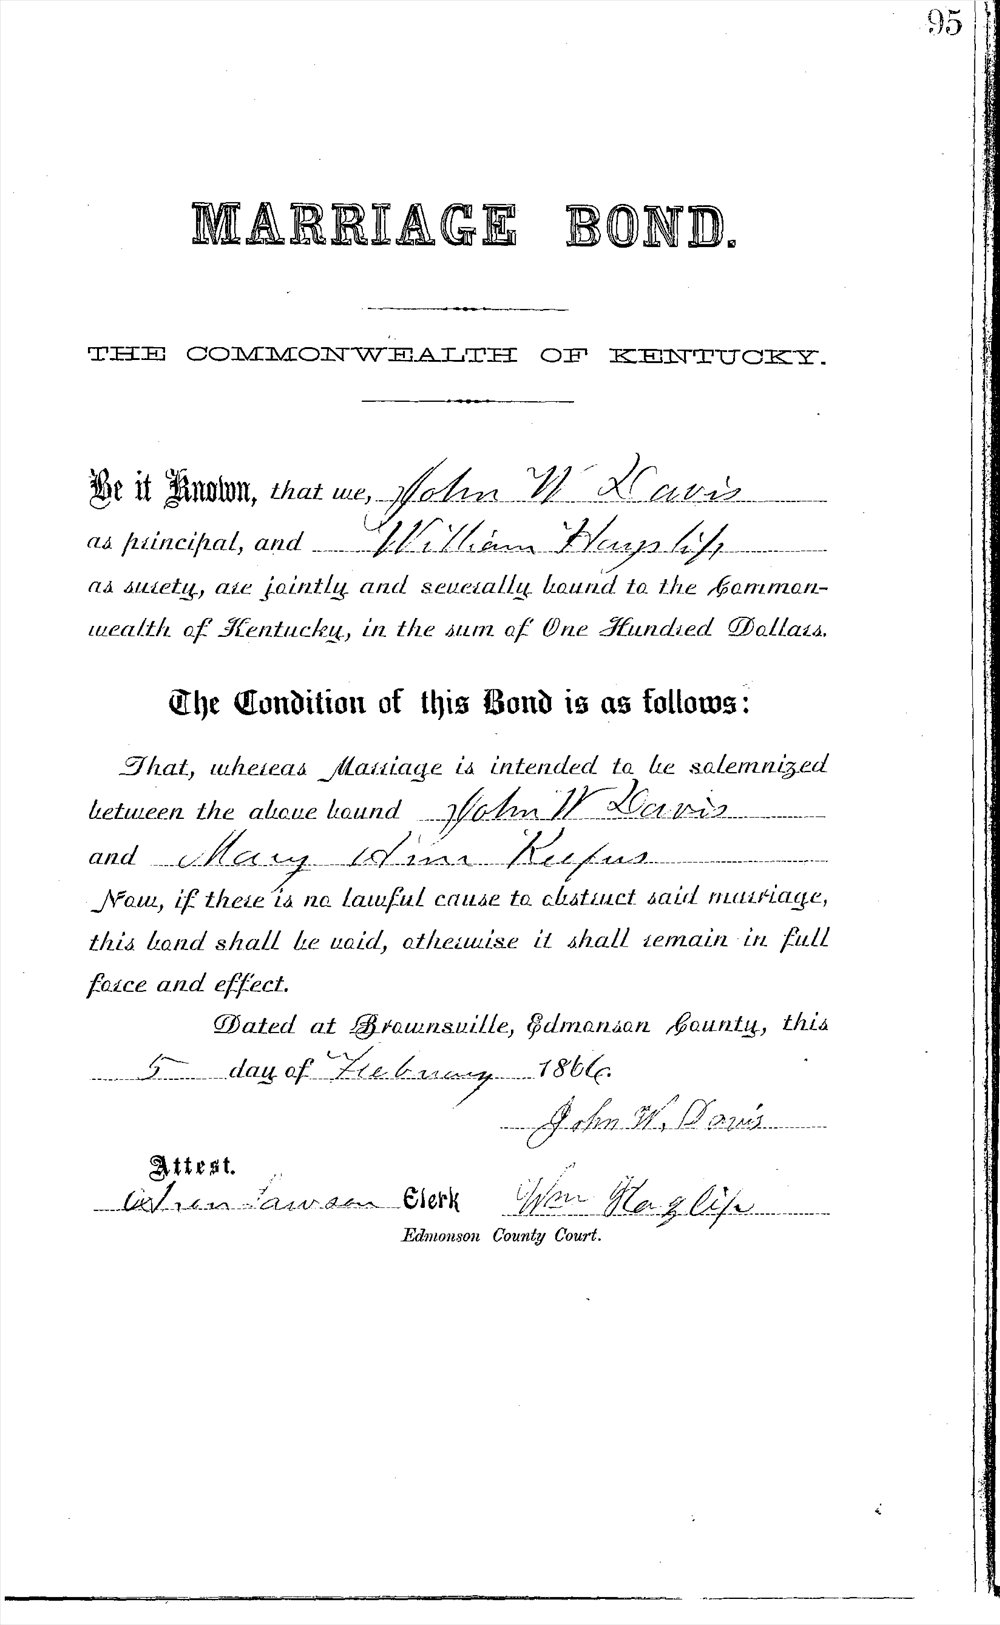 95
MARRIAGE BOND.
THE COMMONWEALTH OF KENTUCKY.
Be it Known, that we, John W Davis
as principal, and William Hayslip
as surety, are jointly and severally bound to the Common-
wealth of Kentucky, in the sum of One Hundred Dollars.
The Condition of this Bond is as follows:
That, whereas Marriage is intended to be solemnized
between the above bound John W Davis
and Mary Ann
Now, if there is no lawful cause to obstruct said marriage,
this bond shall be void, otherwise it shall remain in full
force and effect.
Dated at Brownsville, Edmonson County, this
5 day of February 1866.
John W. Davis
Attest.
Lawson Clerk Wm
Edmonson County Court.